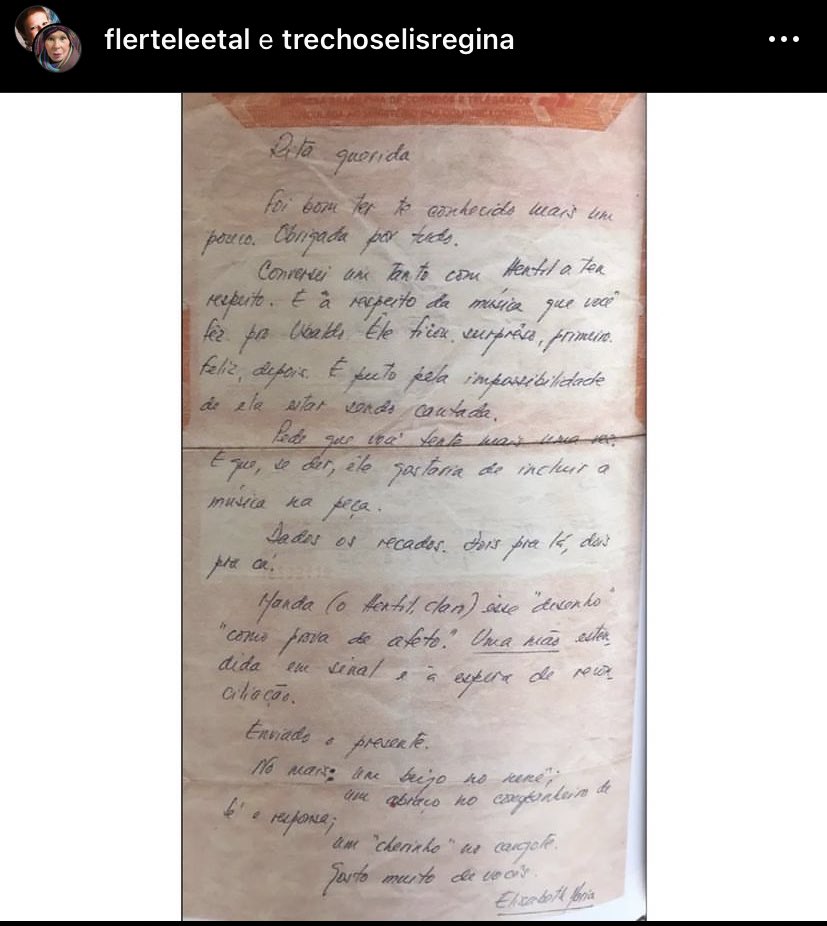 flerteleetal e trechoselisregina
EMPRESA BRASILEIRA DE CORREIOS E TELÉGRAFOS
VINCULADA AO MINISTÉRIO DAS COMUNICAÇÕES
Rita querida
Foi bom ter te conhecido mais um
pouco. Obrigada por tudo.
Conversei um tanto com Henfil a teu
respeito. E à respeito da música que você
fêz pro Ubaldo. Êle ficou, surprêso, primeiro.
Feliz, depois. E puto pela impossibilidade
de ela estar sendo cantada.
Pede que você tente mais uma vez.
E que, se der, êle gostaria de incluir a
música na peça.
Dados os recados. Dois pra lá, dois
pra cá.
Manda (o Henfil, claro) êsse "desenho"
"como prova de afeto." Uma mão esten-
dida em sinal e à espera de recon-
ciliação.
Enviado o presente.
No mais: um beijo no nenê;
um abraço no companheiro de
fé e response;
um "cheirinho" no cangote.
Gosto muito de vocês.
Elizabeth Maria